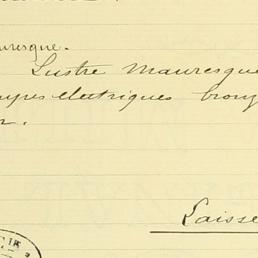 uresque.
Lustre mauresque
électriques bronz
r.
Laisse